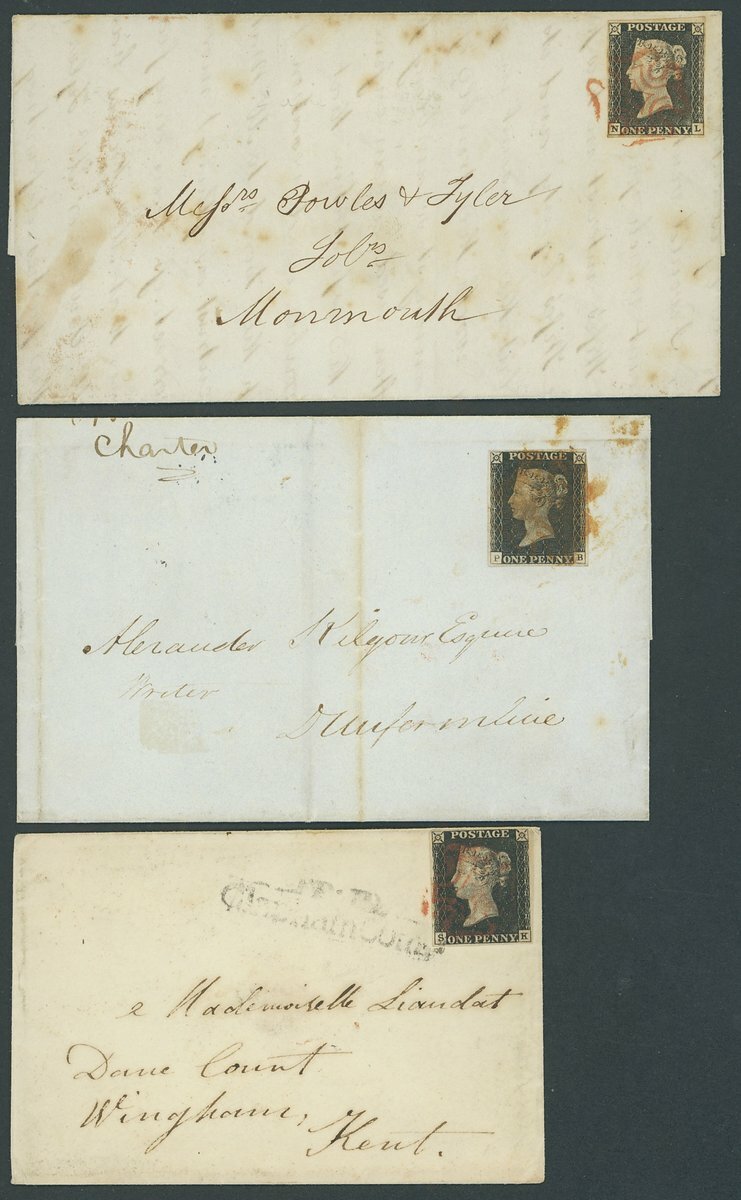 POSTAGE
N ONE PENNY L
Messrs Powles & Tyler
Solrs
Monmouth
Charter
POSTAGE
P ONE PENNY B
Alexander Kilgour Esquire
Writer
Dunfermline
POSTAGE
S ONE PENNY K
a Mademoiselle Liaudat
Dane Court
Wingham,
Kent.